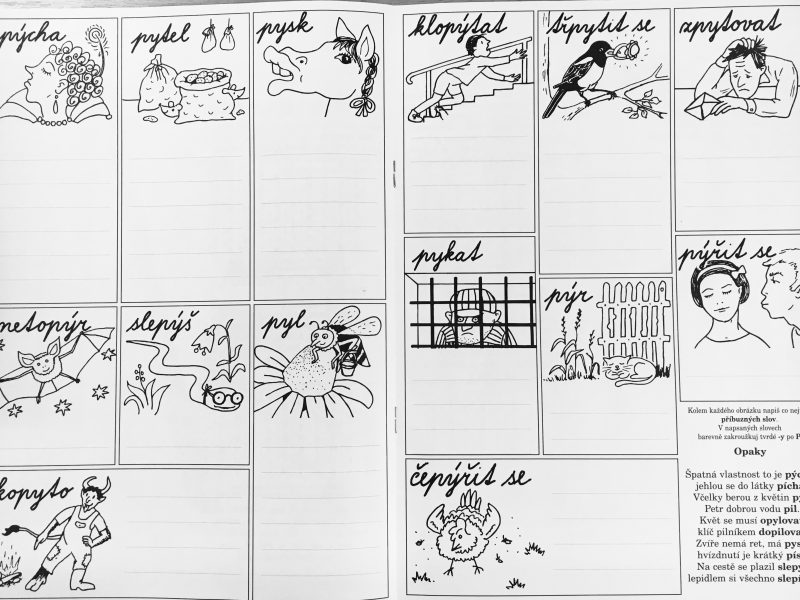 pýcha
pytel
pysk
netopýr
slepýš
pyl
kopyto
klopýtat
třpytit se
zpytovat
pykat
pýr
pýřit se
čepýřit se
Kolem každého obrázku napiš co nej
příbuzných slov.
V napsaných slovech
barevně zakroužkuj tvrdé -y po P
Opaky
Špatná vlastnost to je pýc
jehlou se do látky pícha
Včelky berou z květin py
Petr dobrou vodu pil.
Květ se musí opylova
klíč pilníkem dopilova
Zvíře nemá ret, má pys
hvízdnutí je krátký pís
Na cestě se plazil slepý
lepidlem si všechno slepí